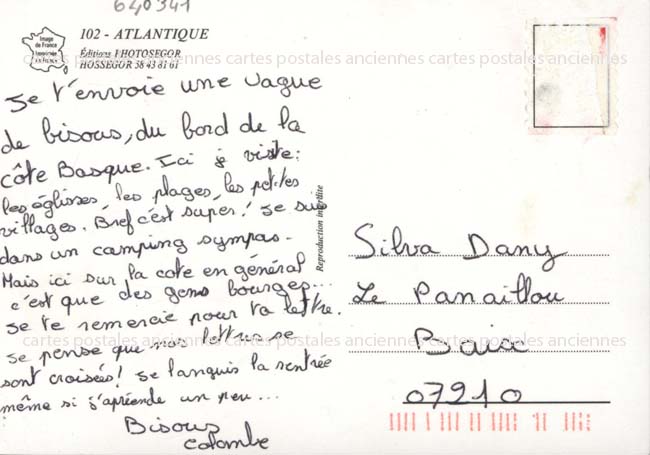 640341
Image
de France
Imprimée
en France
102 - ATLANTIQUE
Éditions PHOTOSEGOR
HOSSEGOR 58 43 81 61
cartes postales anciennes cartes postales anciennes cartes postales anciennes
Je t'envoie une vague
de bisous, du bord de la
côte Basque. Ici je visite:
les églises, les plages, les petites
villages. Bref c'est super! Je suis
dans un camping sympas.
Mais ici sur la cote en général
c'est que des gens bourges...
Je te remercie pour ta lettre.
Je pense que nos lettres se
sont croisées! Je languis la rentrée
même si j'apréende un peu...
Bisous
Colombe
Reproduction interdite
Silva Dany
Le Panaillou
Baix
07210
cartes postales anciennes cartes postales anciennes cartes postales anciennes